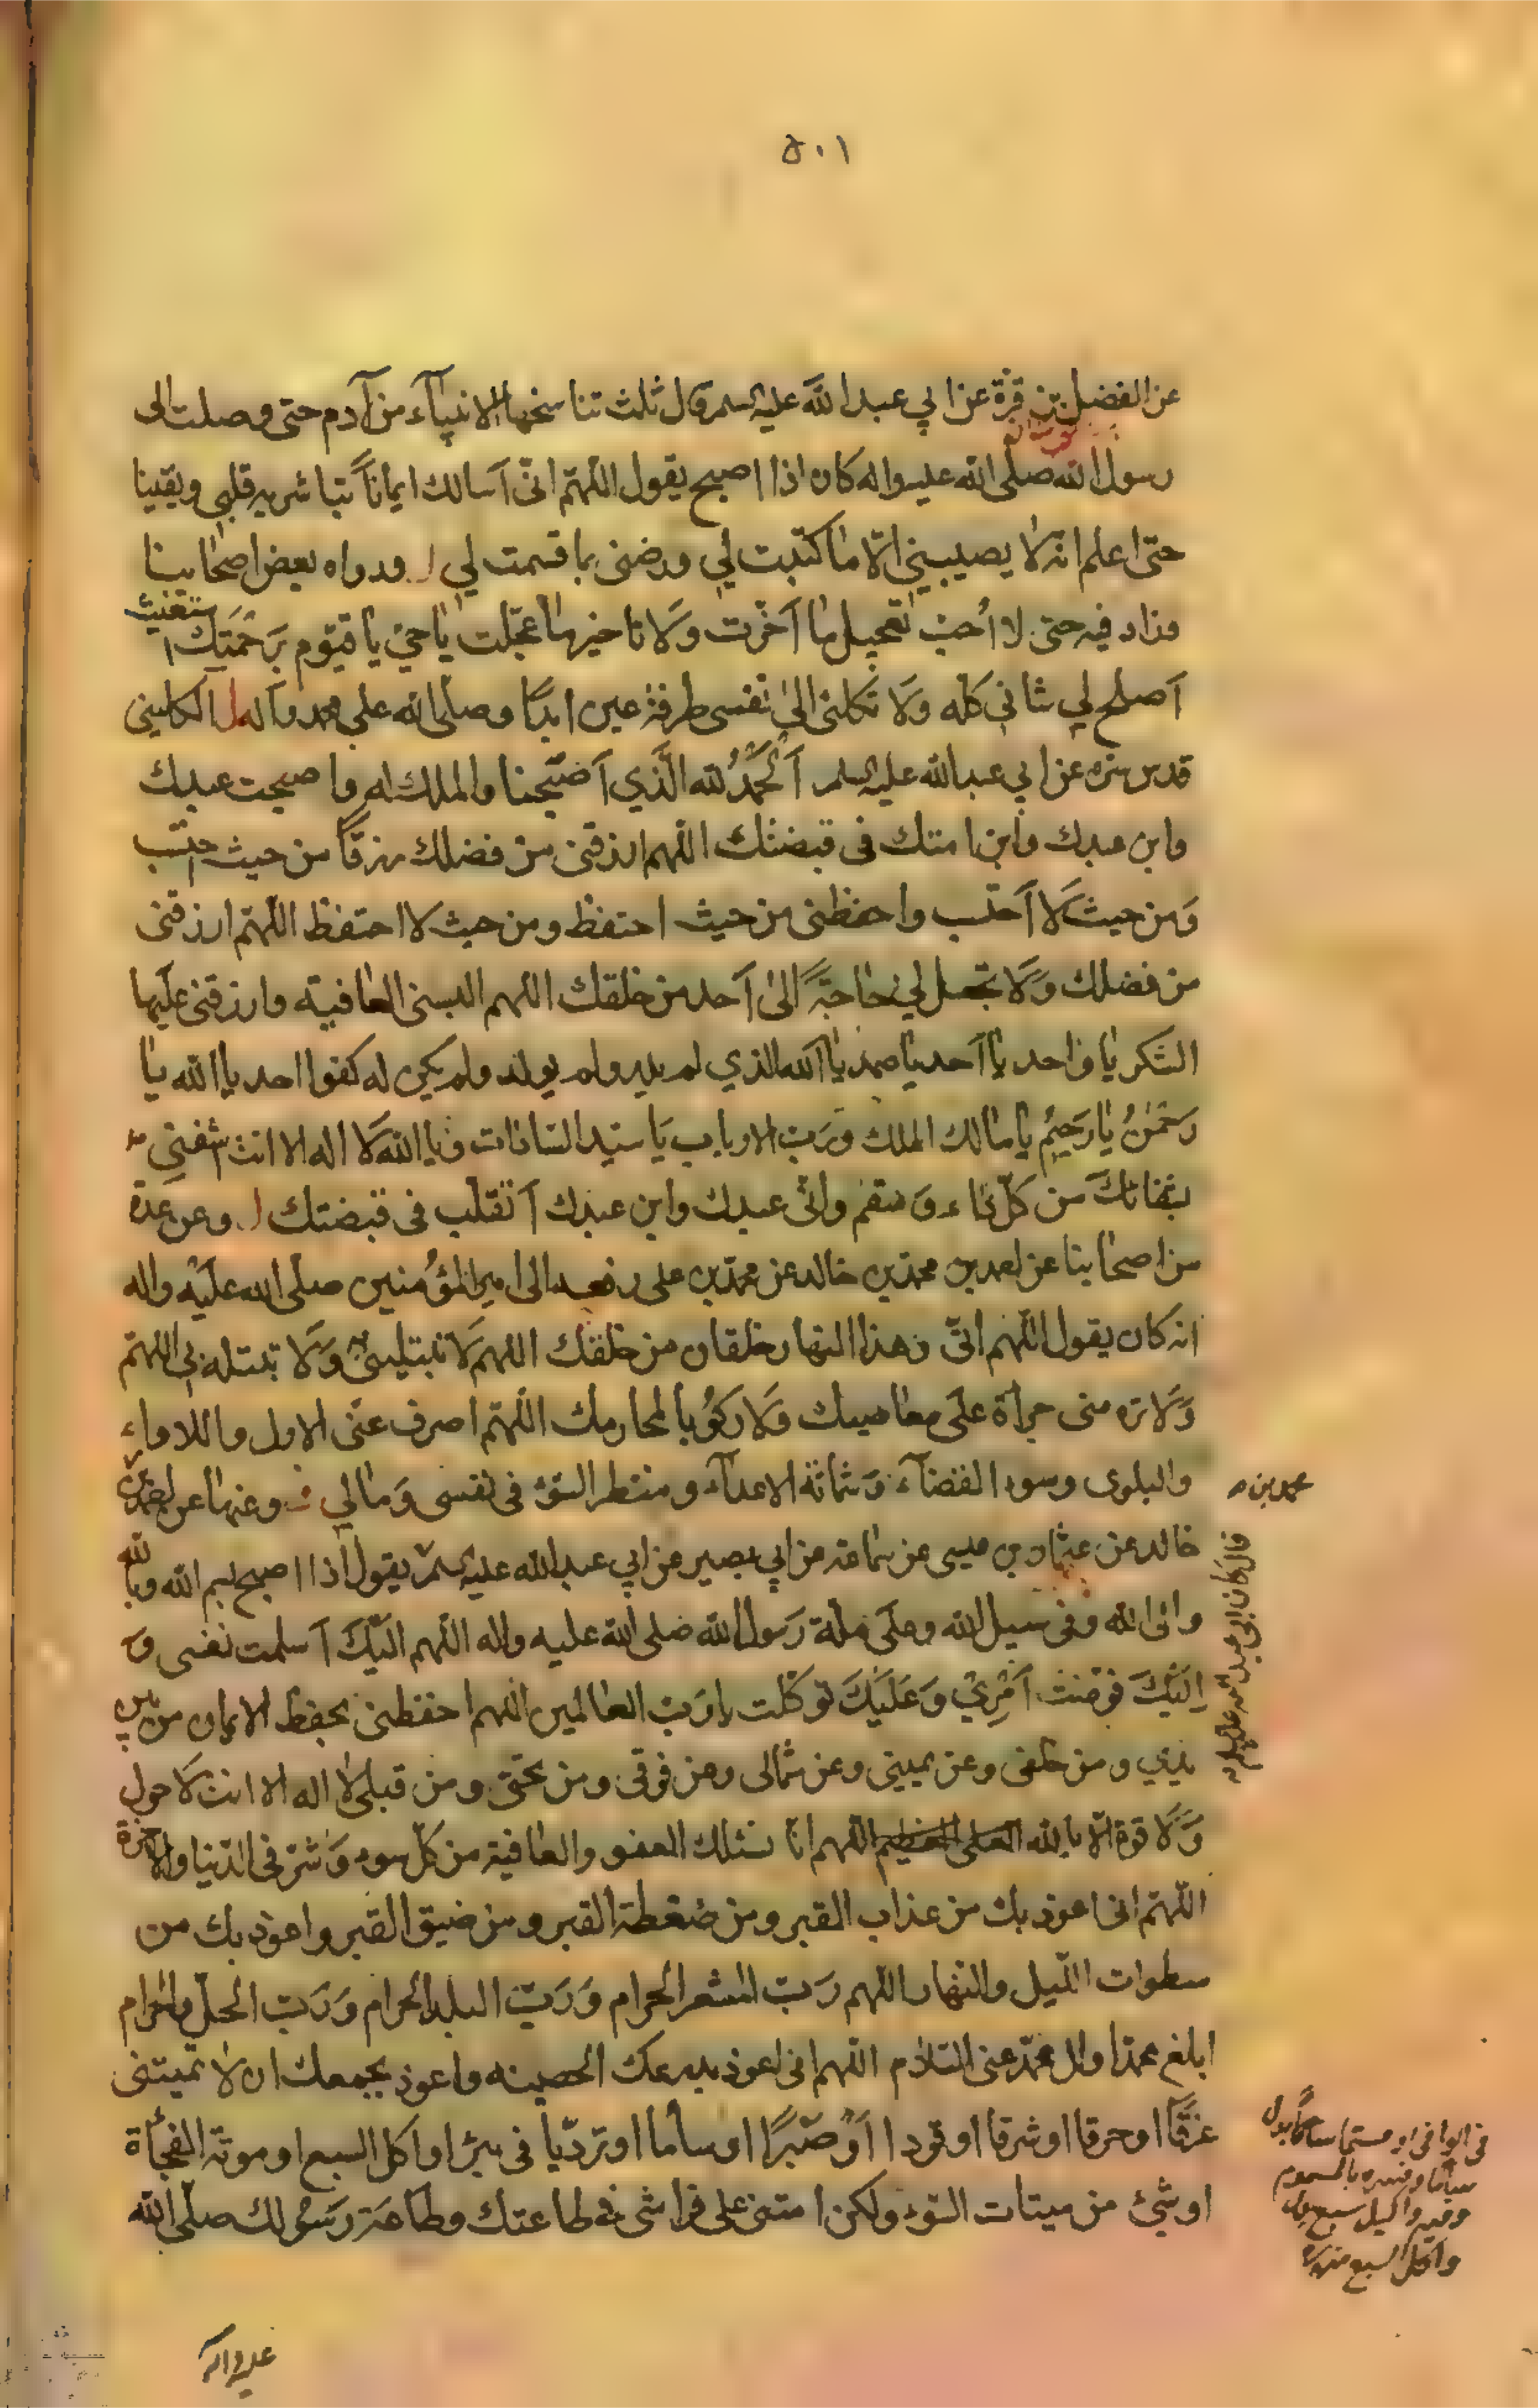 ٥٠١
عن الفضل بن قرة عن ابي عبد الله عليه السلم قال ثلث تناسخها الانبيآء من آدم حتى وصلت الى
رسول الله صلى الله عليه واله كان اذا اصبح يقول اللهم انى أسالك ايمانا تباشر به قلبي ويقينا
حتى اعلم انه لا يصيبني الا ما كتبت لي ورضنى بما قسمت لي ورواه بعض اصحابنا
وزاد فيه حتى لا أحب تعجيل ما أخرت وَلا تاخير ما عجلت يا حيّ يا قيّوم بَرحمَتِكَ استغيث
اَصلح لي شاني كله وَلا تكلنى الىٰ نفسى طرفة عين ابدًا وصلى الله على محمد وآله الكلينى
قدس سره عن ابي عبد الله عليه السلم اَلحَمدُ لله الَّذي اَصبَحنا والملك له واصبحت عبدك
وابن عبدك وابن امتك في قبضتك اللهم ارزقنى من فضلك رزقاً من حيث احتسب
وَمن حيث لا اَحتسب واحفظنى من حيث احتفظ ومن حيث لا احتفظ اللهم ارزقنى
من فضلك وَلا تجعل لي حاجةً الىٰ اَحد من خلقك اللهم البسنى العافية وارزقنى عليها
الشكر يا واحد يا اَحد يا صمد يا الله الذي لم يلد ولم يولد ولم يكن له كفوا احد يا الله يا
رَحمٰنُ يا رَحيمُ يا مالك الملك ورَب الارباب يَا سيد السادات ويا الله لا اله الا انت اشفني
بشفائك من كل داء وَسقم وانى عبدك وابن عبدك اَتقلب فى قبضتك وعن عدة
من اصحابنا عن احمد بن محمد بن خالد عن محمد بن على رفعه الى امير المؤمنين صلى الله عليه واله
انه كان يقول اللهم انى وهذا النهار خلقان من خلقك اللهم لا تبتلينى به وَلا تبتله بى اللهم
وَلا تره منى جراة على معاصيك وَلا ركوبا لمحارمك اللهم اصرف عنى الازل واللاواء
والبلوى وسوء القضآء وَشماتة الاعدآء ومنظر السوء فى نفسى وَمالي وعنها عن احمد بن
محمد بن
خالد عن عثمان بن عيسى عن سماعة عن ابي بصير عن ابي عبد الله عليه السلم يقول اذا اصبح بسم الله وبالله
قال كان ابي عبد الله عليه السلم
والى الله وفى سبيل الله وعلى ملة رَسول الله صلى الله عليه واله اللهم اليكَ اَسلمت نفسى وَ
اِليكَ فوضت اَمري وَعَليكَ توكلت يا رَبّ العالمين اللهم احفظنى بحفظ الايمان من بين
يدي ومن خلفى وعن يمينى وعن شمالى ومن فوقى ومن تحتى ومن قبلى لا اله الا انت لا حول
وَلا قوة الا بالله العلى العظيم اللهم انا نسئلك العفو والعافية من كل سوء وَشر فى الدنيا والاخرة
اللهم انى اعوذ بك من عذاب القبر ومن ضغطة القبر ومن ضيق القبر واعوذ بك من
سطوات الليل والنهار اللهم رَب المشعر الحرام وَرَبّ البلد الحرام وَرَب الحل والحرام
ابلغ محمدا وال محمد عنى السلام اللهم انى اعوذ بدرعك الحصينة واعوذ بجمعك ان لا تميتنى
غرقًا او حرقا او شرقا او قودا اَوْ صَبرًا او سأما او تردّيا فى بئر او اكل السبع او موتة الفجأة
او شيئ من ميتات السوء ولكن امتنى على فراشى في طاعتك وطاعة رَسولك صلى الله
فى الوافى
وفيه واكيل سبع بدل
واكل السبع منه
عليه واله